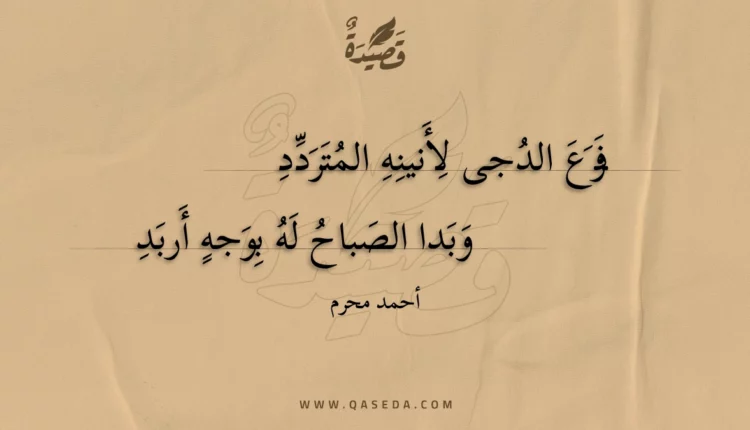 قَصِيدَةٌ
فَزَعَ الدُجى لِأَنينِهِ المُتَرَدِّدِ
وَبَدا الصَباحُ لَهُ بِوَجهٍ أَربَدِ
أحمد محرم
WWW.QASEDA.COM